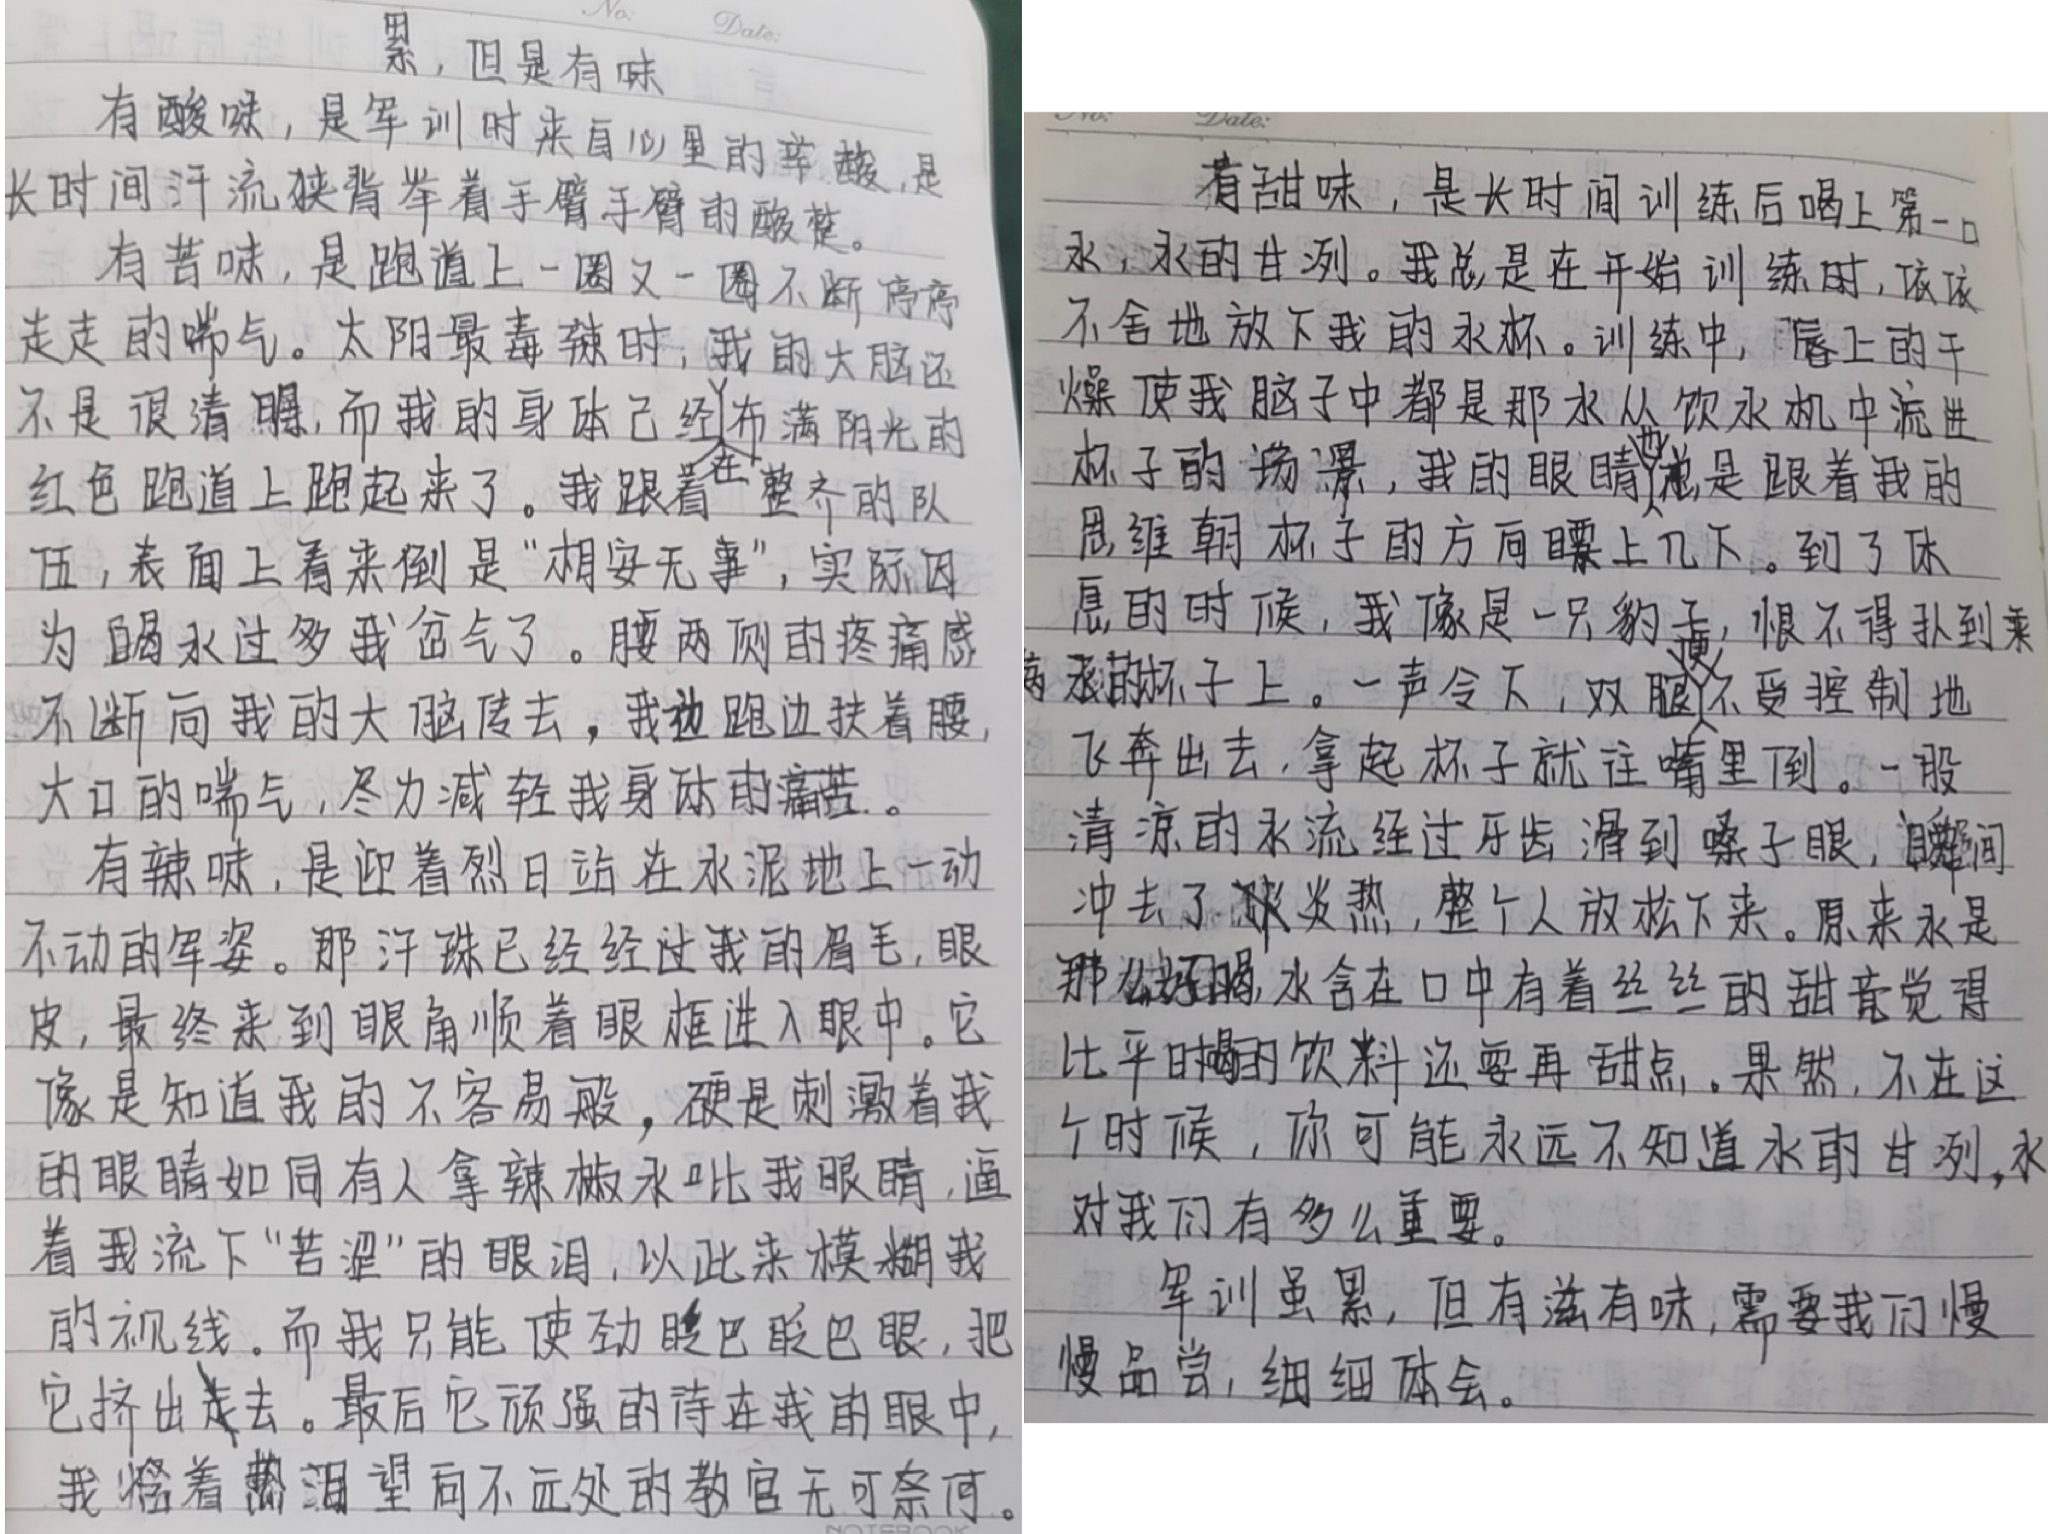 No:
Date:
累，但是有味
有酸味，是军训时来自心里的辛酸，是
长时间汗流狭背举着手臂手臂的酸楚。
有苦味，是跑道上一圈又一圈不断停停
走走的喘气。太阳最毒辣时，我的大脑还
不是很清醒，而我的身体已经在布满阳光的
红色跑道上跑起来了。我跟着整齐的队
伍，表面上看来倒是“相安无事”，实际因
为喝水过多我岔气了。腰两侧的疼痛感
不断向我的大脑传去，我边跑边扶着腰，
大口的喘气，尽力减轻我身体的痛苦。
有辣味，是迎着烈日站在水泥地上一动
不动的军姿。那汗珠已经经过我的眉毛，眼
皮，最终来到眼角顺着眼框进入眼中。它
像是知道我的不容易般，硬是刺激着我
的眼睛如同有人拿辣椒水呲我眼睛，逼
着我流下“苦涩”的眼泪，以此来模糊我
的视线。而我只能使劲眨巴眨巴眼，把
它挤出去。最后它顽强的待在我的眼中，
我含着热泪望向不远处的教官无可奈何。
NOTEBOOK
No:
Date:
有甜味，是长时间训练后喝上第一口
水，水的甘冽。我总是在开始训练时，依依
不舍地放下我的水杯。训练中，唇上的干
燥使我脑子中都是那水从饮水机中流进
杯子的场景，我的眼睛也总是跟着我的
思维朝杯子的方向瞟上几下。到了休
息的时候，我像是一只豹子，恨不得扑到
的杯子上。一声令下，双腿便不受控制地
飞奔出去，拿起杯子就往嘴里倒。一股
清凉的水流经过牙齿滑到嗓子眼，瞬间
冲去了炎热，整个人放松下来。原来水是
那么好喝，水含在口中有着丝丝的甜竟觉得
比平时喝的饮料还要再甜点。果然，不在这
个时候，你可能永远不知道水的甘冽，水
对我们有多么重要。
军训虽累，但有滋有味，需要我们慢
慢品尝，细细体会。